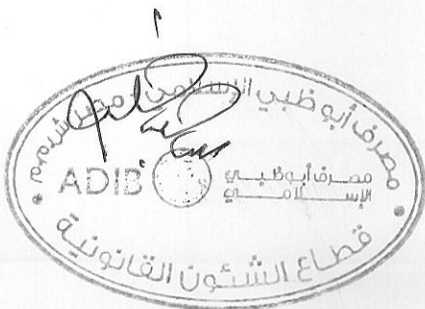 مصرف أبوظبي الإسلامي مصر ش.م.م
ADIB
مصرف أبوظبي
الإسلامي
قطاع الشئون القانونية